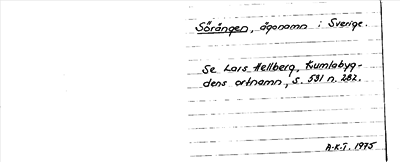 Sörängen, ägonamn i Sverige.
Se Lars Hellberg, Kumlabyg-
dens ortnamn, s. 531 n. 282.
A.K.T. 1975